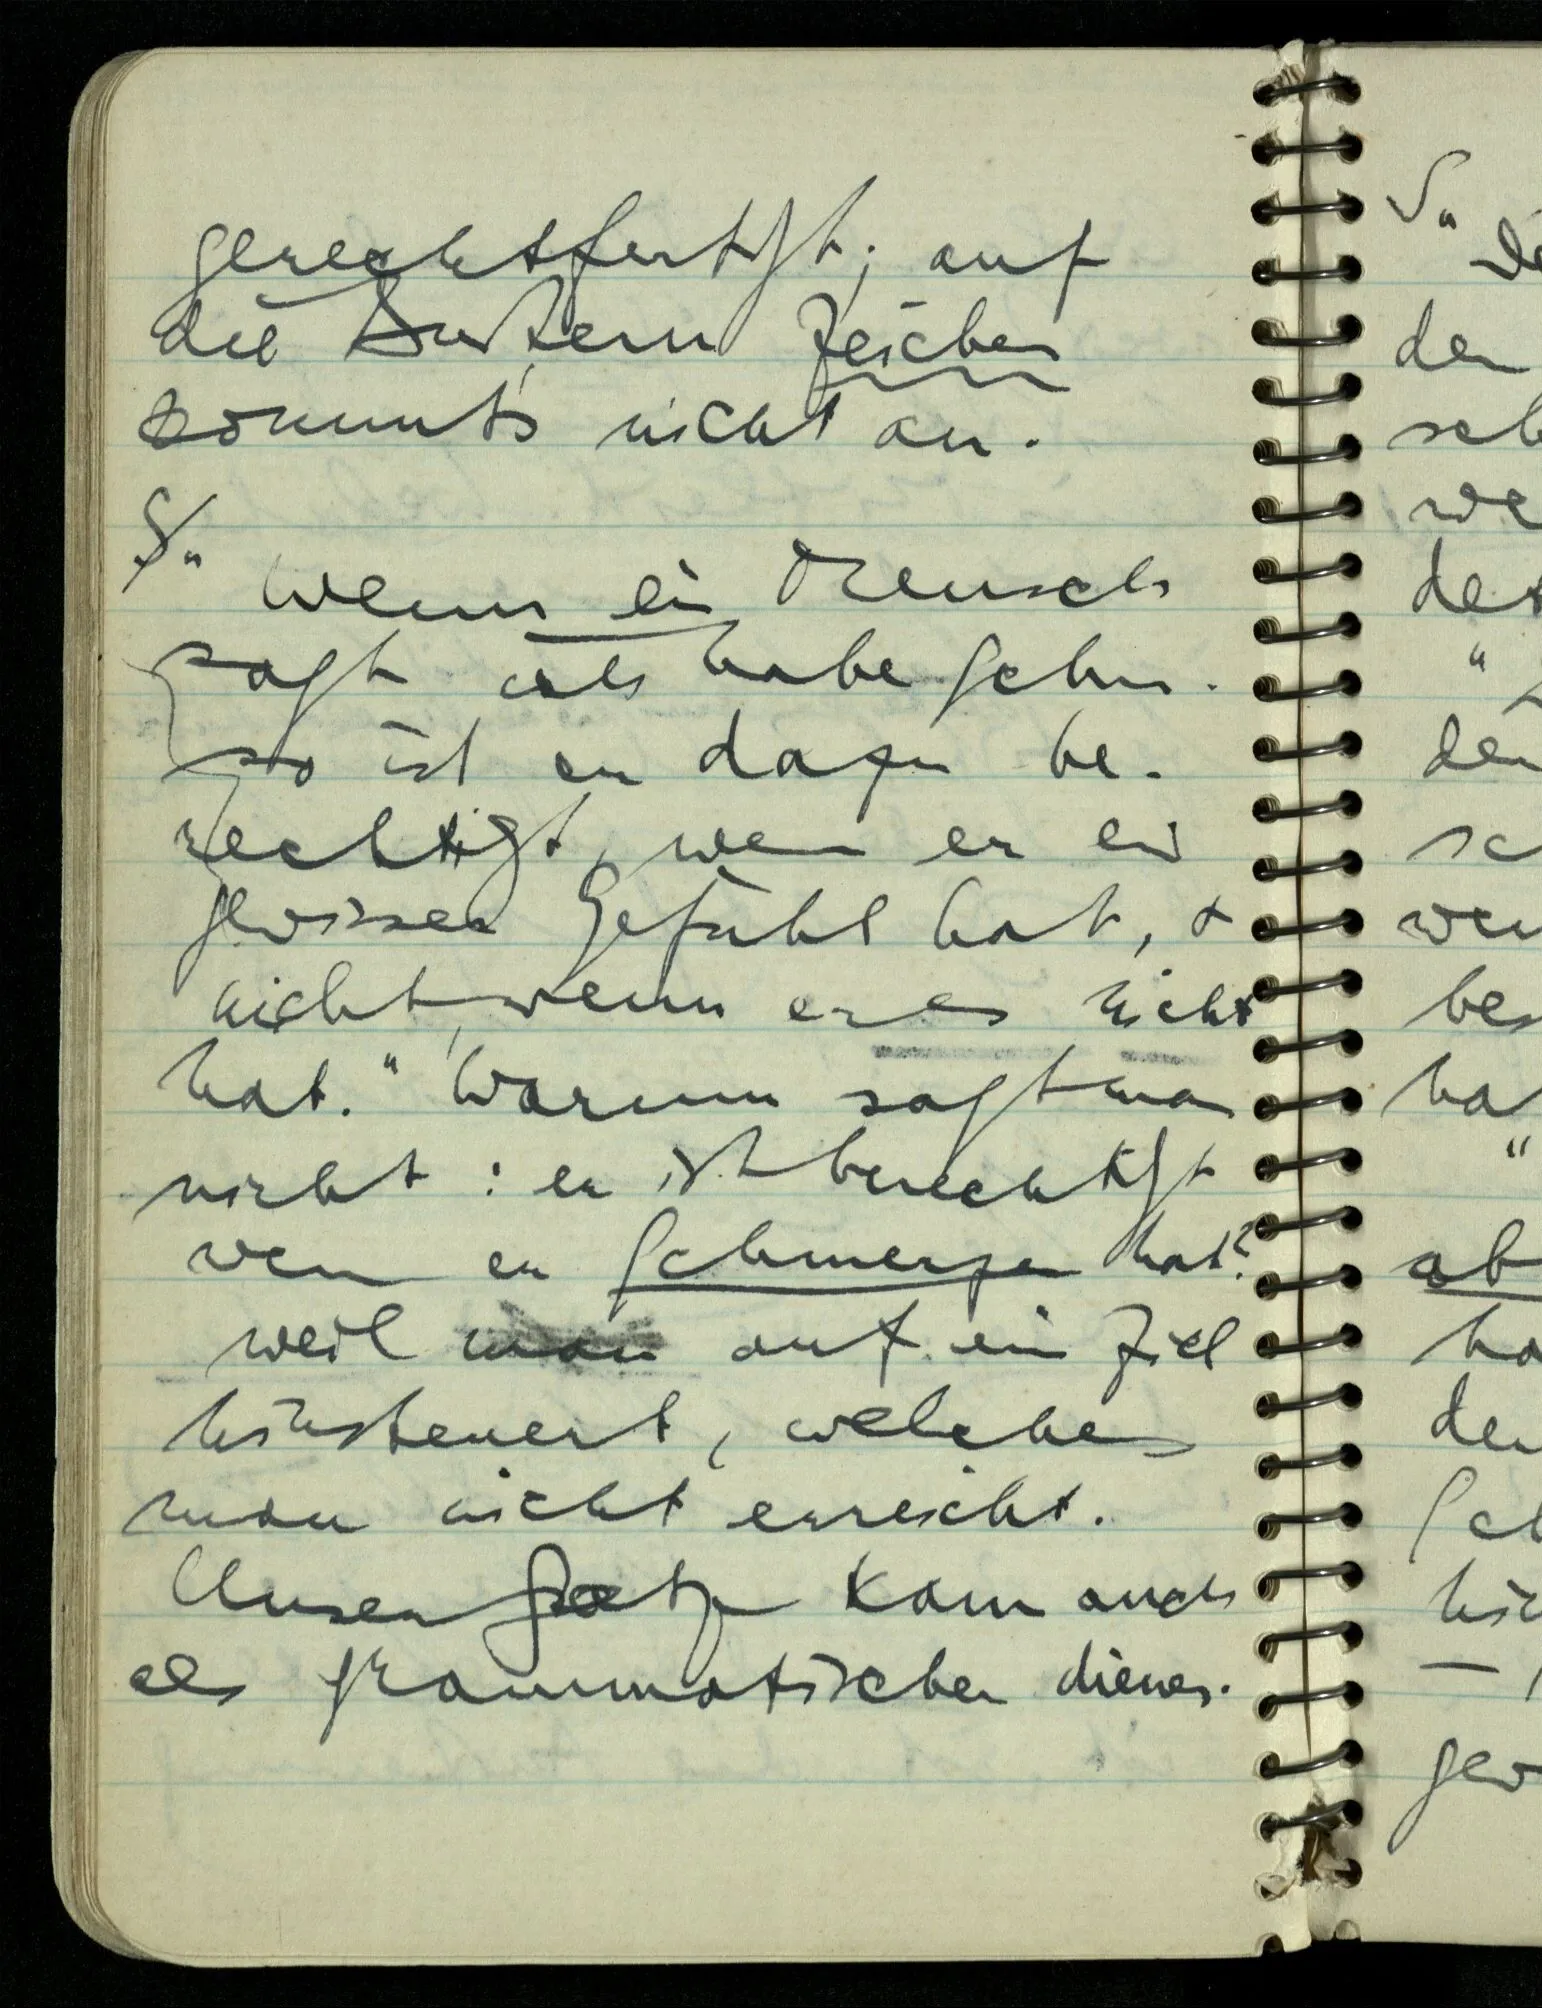 gerechtfertigt; auf
die äußern Zeichen
kommts nicht an.
S/
" Wenn ein Mensch
sagt ich habe Schm.
so ist er dazu be-
rechtigt, wenn er ein
gewisses Gefühl hat, &
nicht, wenn er es nicht
hat." Warum sagt man
nicht: er ist berechtigt
wenn er Schmerzen hat?
weil man auf ein Ziel
hinsteuert, welches
man nicht erreicht.
Unser Satz kann auch
als grammatischer dienen.
S
"
de
den
sch
we
"
ha
"
ab
ha
den
Sch
—
gew